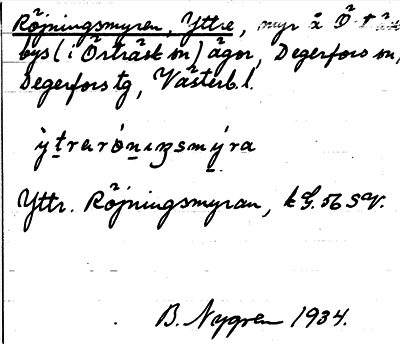 Röjningsmyren, Yttre, myr å Ört
bys (i Örträsk sn) ägor, Degerfors sn,
Degerfors tg, Västerb. l.
ỳtrarönıŋsmýra
Yttr. Röjningsmyran, k G. 56 SV.
B. Nygren 1934.